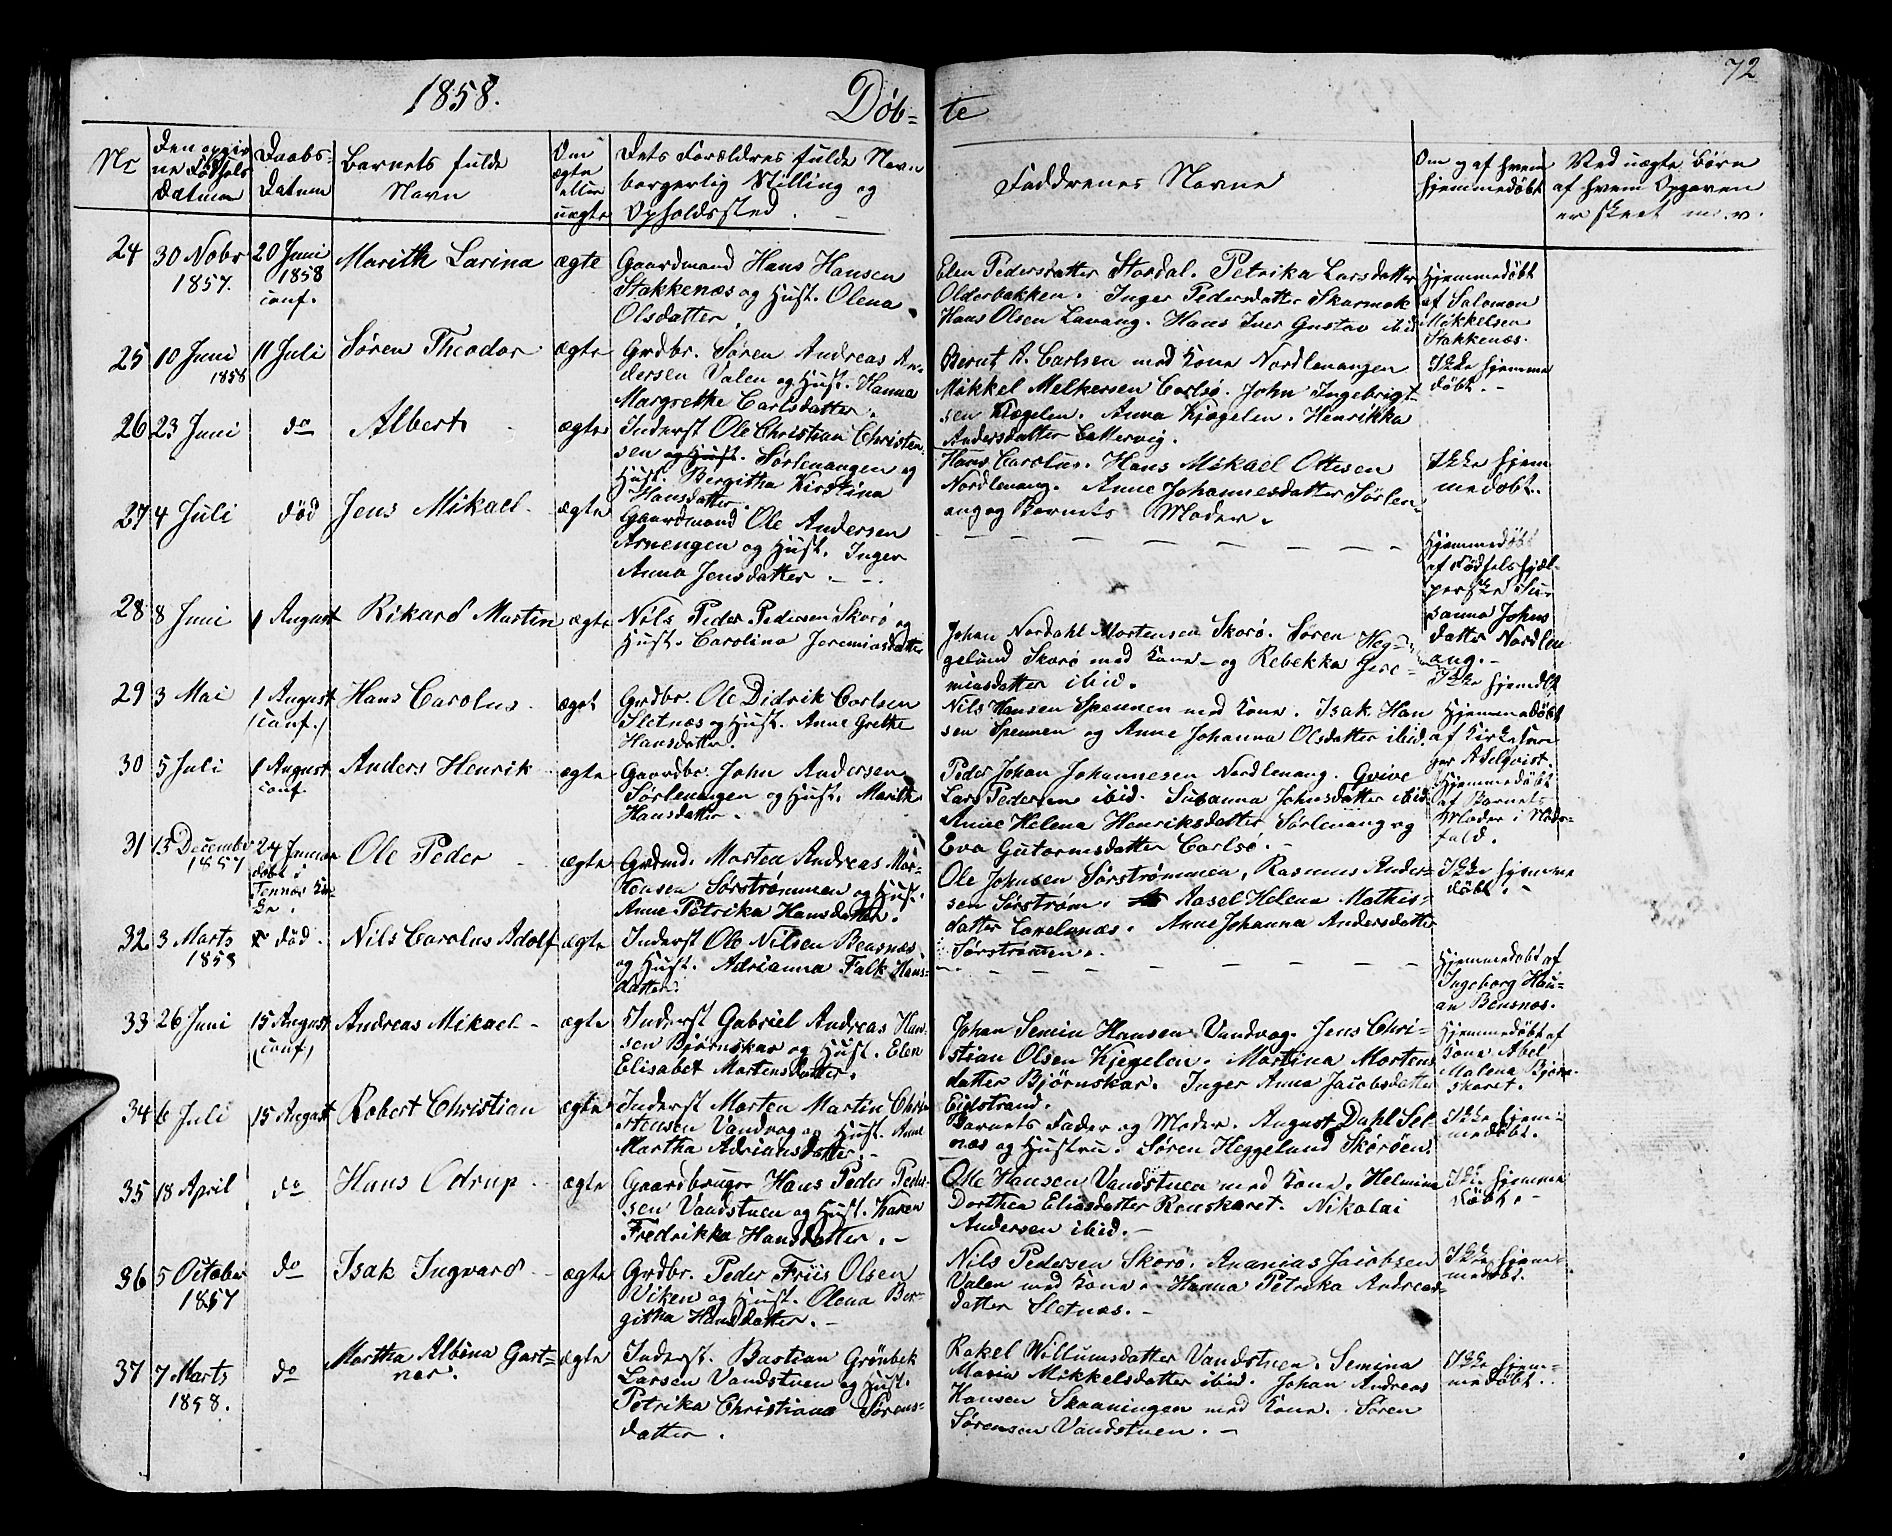 72
1858.
Døb= te
Nr
Den opgiv
ne Fødsels
Datum
Daabs-
Datum
Barnets fulde
Navn
Om
ægte
eller
uægte
Dets Forældres fulde Navn
borgerlig Stilling og
Opholdssted.
Faddrenes Navne
Om og af hvem
hjemmedøbt
Ved uægte Børn
af hvem Opgaven
er skeet m. v.
24
30 Nobr
1857.
20 Juni
1858
conf.
Marith Larina
ægte
Gaardmand Hans Hansen
Stakkenæs og Hust. Olena
Olsdatter.
Elen Pedersdatter Stordal. Petrika Larsdatter
Olderbakken. Inger Pedersdatter Skarmok
Hans Olsen Lavang. Hans Iver Gustav ibid
Hjemmedøbt
af Salomon
Mikkelsen
Stakkenæs.
25
10 Juni
1858
11 Juli
Søren Theodor
ægte
Grdbr. Søren Andreas An-
dersen Valen og Hust. Hanna
Margrethe Carlsdatter.
Bernt A. Carlsen med Kone Nordlenangen
Mikkel Melkersen Carlsø. John Ingebrigt-
sen Kjægelen. Anna Kjægelen. Henrikka
Andersdatter Lattervig.
Ikke hjemme
døbt. -
26
23 Juni
do
Albert
ægte
Inderst Ole Christian Christen
sen og Hust. Sørlenangen og
Hust. Bergitha Kirstina
Hansdatter.
Hans Carolus. Hans Mikael Ottesen
Nordlenang. Anne Johannesdatter Sørlen-
ang og Barnets Moder.
Ikke hjem
medøbt.
27
4 Juli
død
Jens Mikael
ægte
Gaardmand Ole Andersen
Arnengen og Hust. Inger
Anna Jensdatter. -
Hjemmedøbt
af Fødselshjæl-
perske Su-
sanna Johns
datter Nordlen
ang. -
28
8 Juni
1 August
Rikard Martin
ægte
Nils Peder Pedersen Skorø og
Hust. Carolina Jeremiasdatter
Johan Nordahl Mortensen Skorø. Søren Heg-
gelund Skorø med Kone - og Rebekka Jere-
miasdatter ibid.
Ikke hjemdbt
29
3 Mai
1 August
(conf.)
Hans Carolus
ægte
Grdbr. Ole Didrik Carlsen
Sletnæs og Hust. Anne Grethe
Hansdatter.
Nils Hansen Spennen med Kone. Isak Han
sen Spennen og Anne Johanna Olsdatter ibid.
Hjemmedøbt
af Kirkesan-
ger Adelqvist.
30
5 Juli
1 August
conf.
Anders Henrik
ægte
Gaardbr. John Andersen
Sørlenangen og Hust. Marithe
Hansdatter.
Peder Johan Johannesen Nordlenang. Gvive
Lars Pedersen ibid. Susanna Johnsdatter ibid
Anne Helena Henriksdatter Sørlenang og
Eva Gutormsdatter Carlsø. -
Hjemmedøbt
af Barnets
Moder i Nøds-
fald.
31
15 December
1857
24 Januar
døbt i
Tennæs Kir-
ke.
Ole Peder
ægte
Grdmd. Morten Andreas Mor-
tensen Sørstrømmen og Hust.
Anne Petrika Hansdatter.
Ole Johnsen Sørstrømmen, Rasmus Ander-
sen Sørstrøm. Rasel Helena Mathis-
datter Lakselvnæs. Anne Johanna Andersdatter
Sørstrømmen.
Ikke hjemme
døbt. -
32
3 Marts
1858
død.
Nils Carolus Adolf
ægte
Inderst Ole Nilsen Bensnæs
og Hust. Adrianna Falk Hans-
datter.
Hjemmedøbt af
Ingeborg Hau-
an Bensnæs.
33
26 Juni
15 August
(conf.)
Andreas Mikael
ægte
Inderst Gabriel Andreas Han-
sen Bjørnskar og Hust. Elen
Elisabet Mortensdatter.
Johan Semin Hansen Vandvag. Jens Chri-
stian Olsen Kjegelen. Martina Mortens
datter Bjørnskar. Inger Anna Jacobsdatter
Eidstrand.
Hjemmedøbt af
Kona Abel
Malena Bjørn-
skaret.
34
6 Juli
15 August
Robert Christian
ægte
Inderst Morten Martin Chri-
stensen Vandvag og Hust. Anne
Martha Adriansdatter. -
Barnets Fader og Moder. August Dahl Sel-
næs og Hustru. Søren Heggelund Skorøen.
Ikke hjem-
medøbt.
35
18 April
do
Hans Odrup
ægte
Gaardbruger Hans Peder Peder-
sen Vandstuen og Hust. Karen
Fredrikka Hansdatter. -
Ole Hansen Vandstuen med Kone. Helmina
Dorthea Eliasdatter Renskaret. Nikolai
Andersen ibid. -
Ikke hjemme
døbt. -
36
5 October
1857
do
Isak Ingvard
ægte
Grdbr. Peder Friis Olsen
Viken og Hust. Olena Ber-
githa Hansdatter. -
Nils Pedersen Skorø. Ananias Jacobsen
Valen med Kone. Hanna Petrika Andreas-
datter Sletnæs. -
Ikke hjem-
medøbt.
37
7 Marts
1858.
do
Martha Albina Gart-
ner.
ægte
Inderst. Bastian Grønbek
Larsen Vandstuen og Hust.
Petrika Christiana Sørens-
datter.
Rakel Willumsdatter Vandstuen. Semina
Maria Mikkelsdatter ibid. Johan Andreas
Hansen Skaaningen med Kone. Søren
Sørensen Vandstuen. -
Ikke hjem-
medøbt.